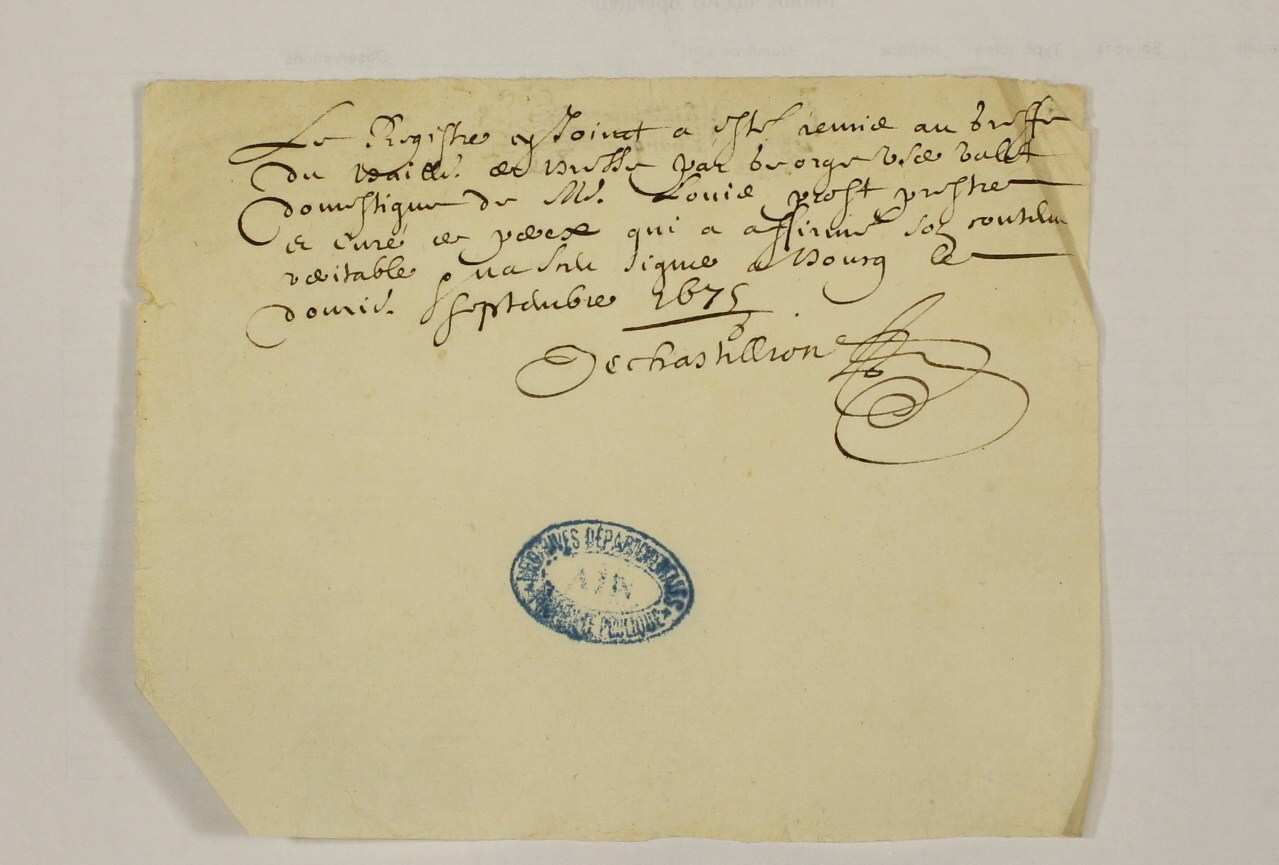 Le Registre cy Joinct a esté remis au Greffe
du Baill. de Bresse par George valet
domestique de M. Louis prost prestre
et curé de qui a affirmé son contenu
veritable signé a Bourg le
septembre 1675
Dechastillion
ARCHIVES DÉPARTEMENTALES
AIN
PUBLIQUE